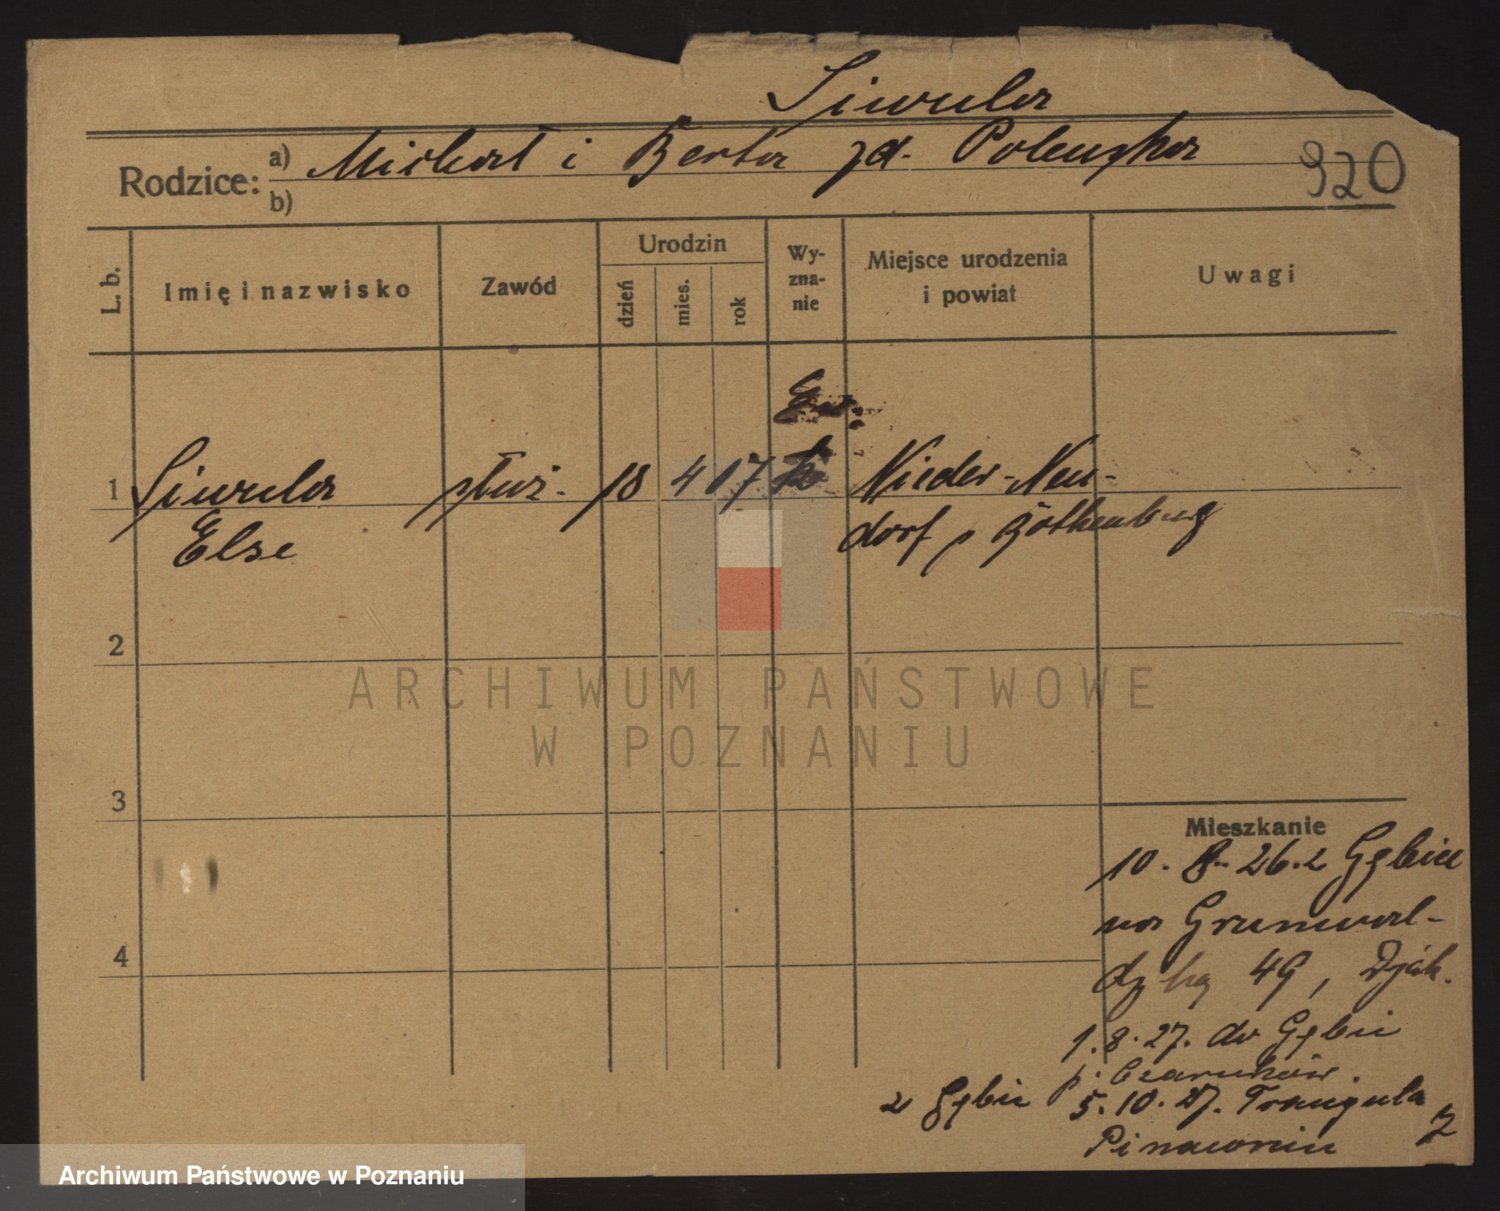 Siwula
Rodzice: a) Michał i Berta zd. Polenska
b)
920
L. b. Imię i nazwisko Zawód Urodzin dzień mies. rok Wy-zna-nie Miejsce urodzenia i powiat Uwagi
Ew.
1 Siwula służ. 18 4 17 Nieder-Neu-
Else dorf p Rothenburg
2
3
4
Mieszkanie
10. 8. 26. z Gębice
na Grunwal-
dzką 49,
1. 8. 27. do Gębic
p. Czarnków.
z Gębic 5. 10. 27. Traugutta
2
ARCHIWUM PAŃSTWOWE
W POZNANIU
Archiwum Państwowe w Poznaniu